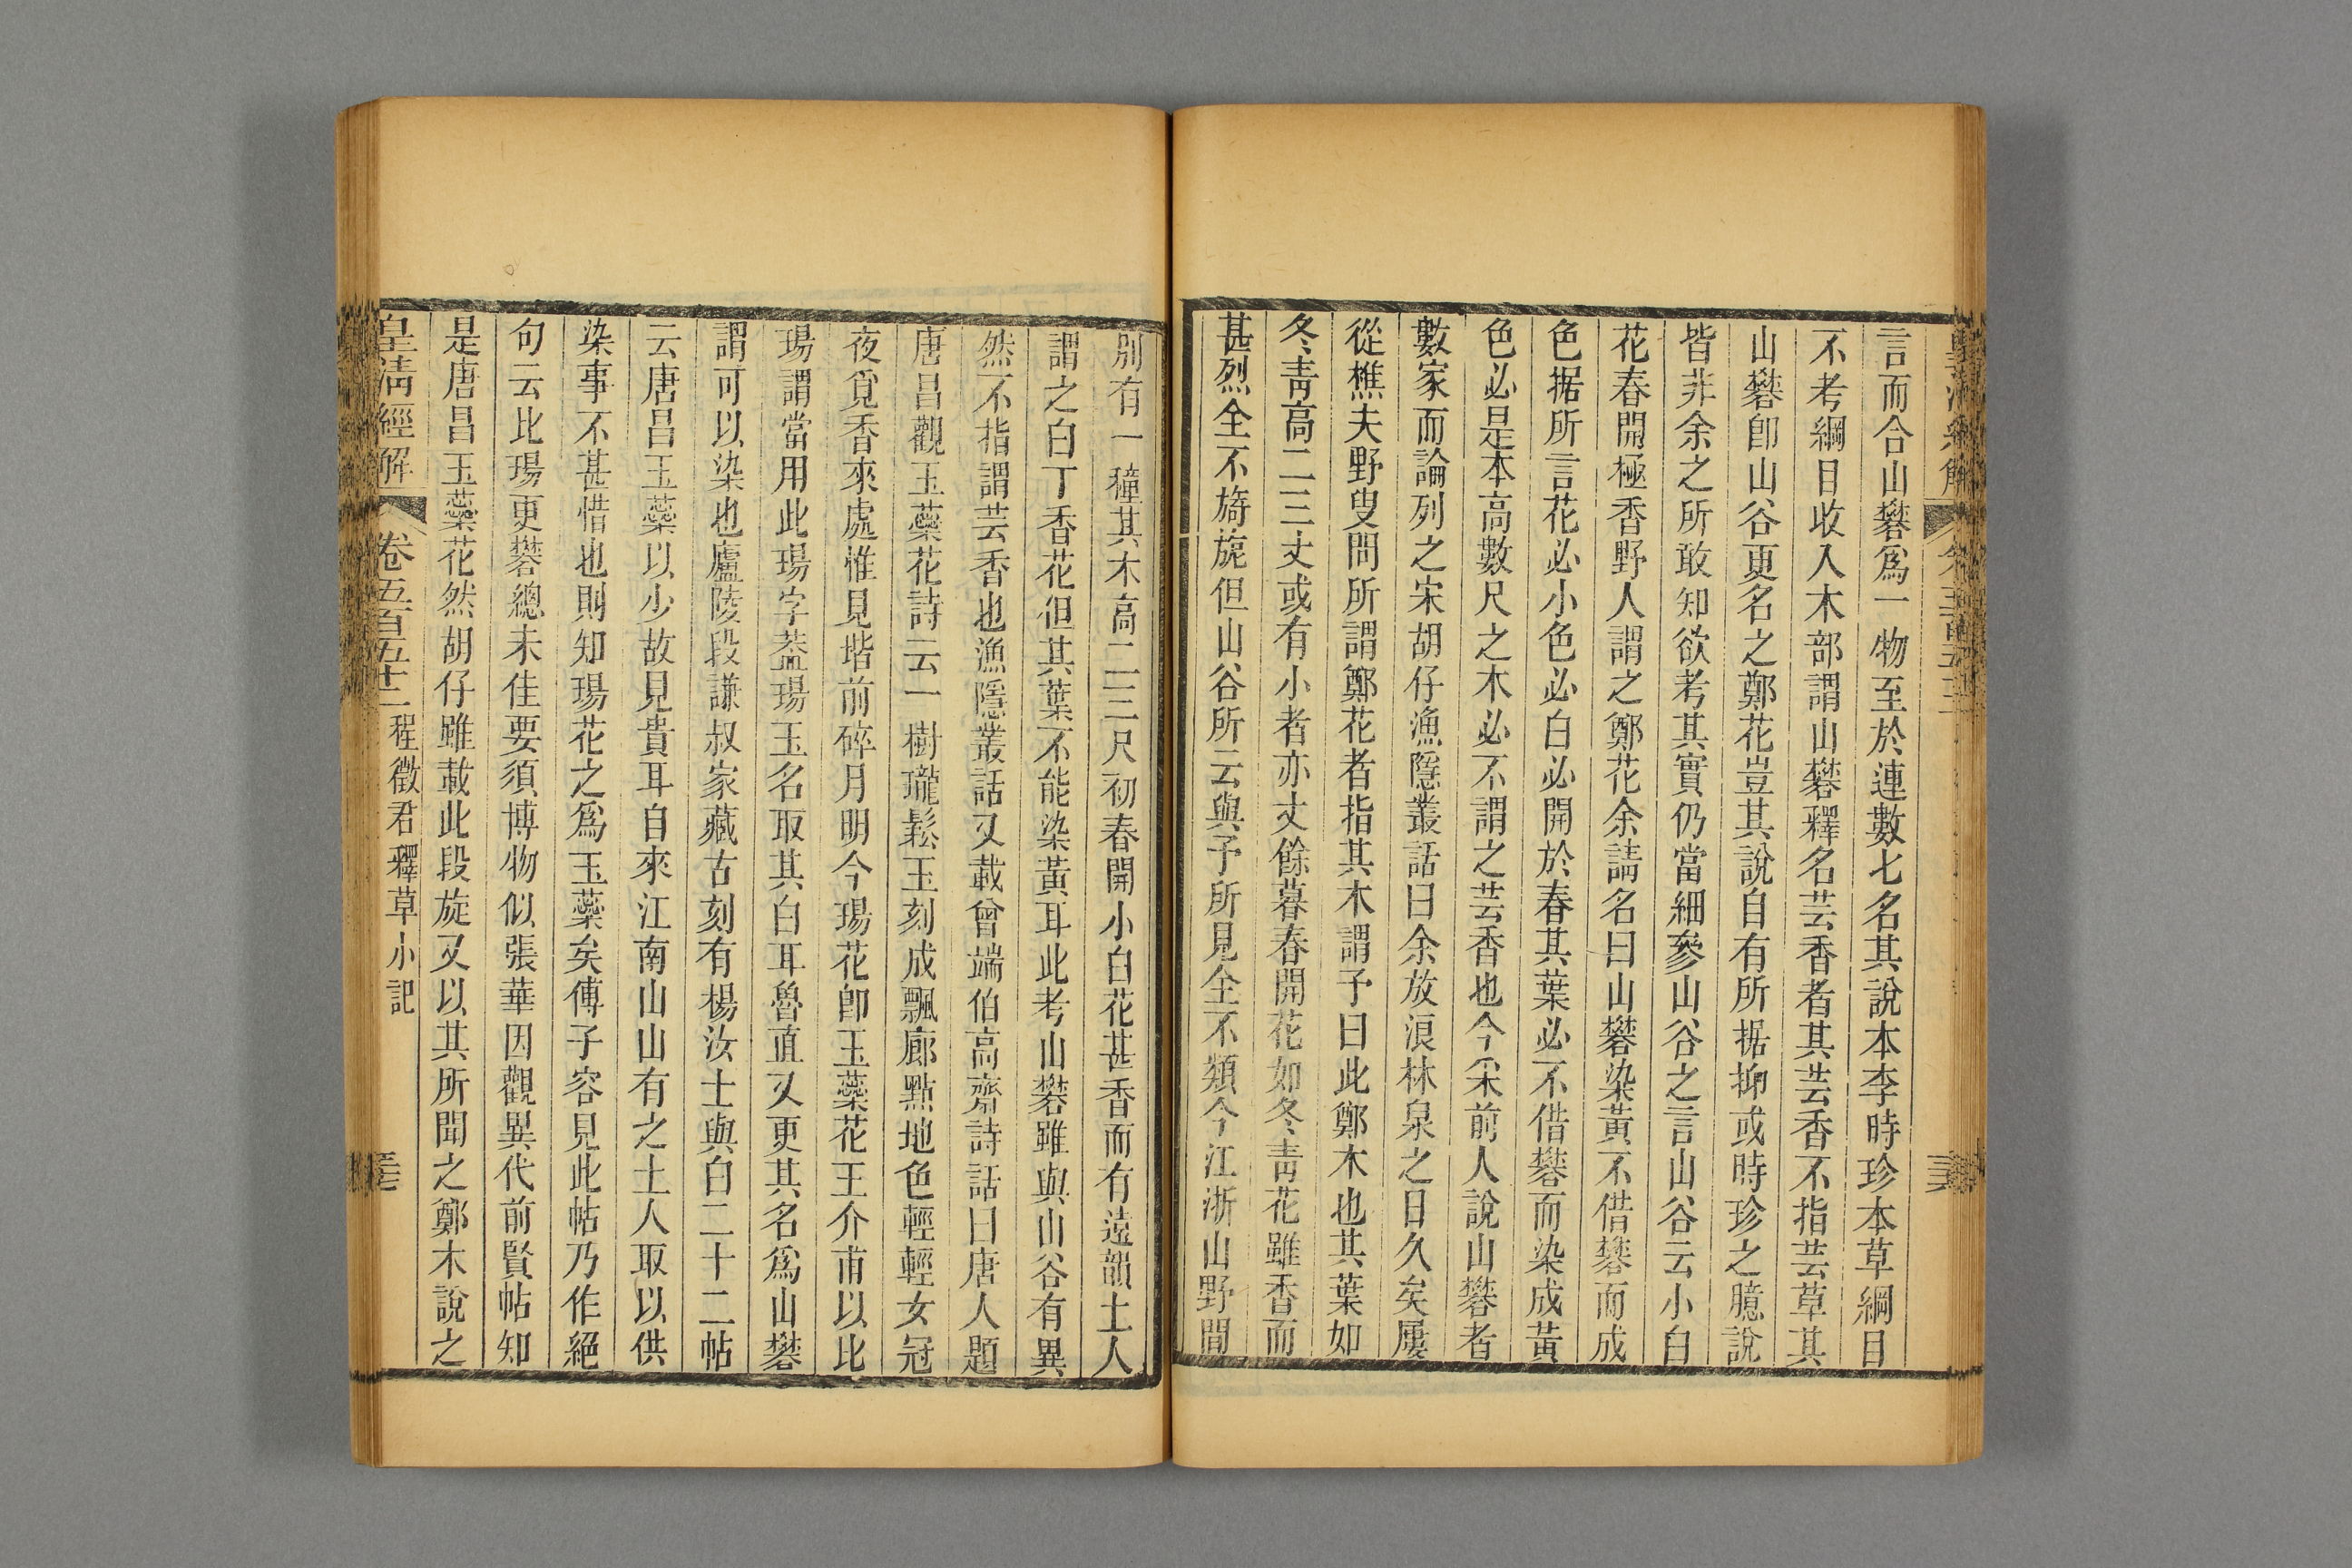 言而合山礬爲一物至於連數七名其說本李時珍本草綱目
不考綱目收入木部謂山礬釋名芸香者其芸香不指芸草其
山礬卽山谷更名之鄭花豈其說自有所据抑或時珍之臆說
皆非余之所敢知欲考其實仍當細參山谷之言山谷云小白
花春開極香野人謂之鄭花余請名曰山礬染黃不借礬而成
色据所言花必小色必白必開於春其葉必不借礬而染成黃
色必是本高數尺之木必不謂之芸香也今采前人說山礬者
數家而論列之宋胡仔漁隱叢話曰余放浪林泉之日久矣屢
從樵夫野叟問所謂鄭花者指其木謂予曰此鄭木也其葉如
冬青高二三丈或有小者亦丈餘暮春開花如冬青花雖香而
甚烈全不旖旎但山谷所云與予所見全不類今江浙山野間
別有一種其木高二三尺初春開小白花甚香而有遠韻土人
謂之白丁香花但其葉不能染黃耳此考山礬雖與山谷有異
然不指謂芸香也漁隱叢話又載曾端伯高齋詩話曰唐人題
唐昌觀玉蘂花詩云一樹瓏鬆玉刻成飄廊點地色輕輕女冠
夜覓香來處惟見堦前碎月明今瑒花卽玉蘂花王介甫以比
瑒謂當用此瑒字葢瑒玉名取其白耳魯直又更其名爲山礬
謂可以染也廬陵段謙叔家藏古刻有楊汝士與白二十二帖
云唐昌玉蘂以少故見貴耳自來江南山山有之土人取以供
染事不甚惜也則知瑒花之爲玉蘂矣傅子容見此帖乃作絕
句云比瑒更礬總未佳要須博物似張華因觀異代前賢帖知
是唐昌玉蘂花然胡仔雖載此段旋又以其所聞之鄭木說之
皇淸經解 卷五百五十二 程徵君釋草小記